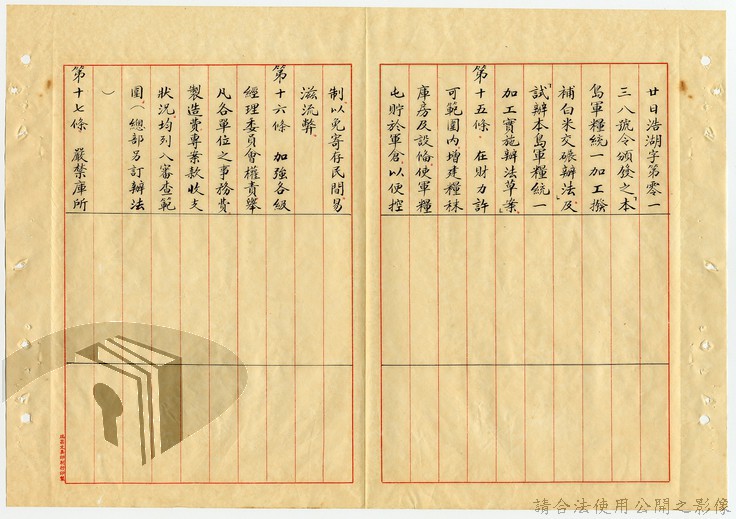 廿日浩湖字第零一
三八號令頒發之「本
島軍糧統一加工撥
補白米交碾辦法」及
「試辦本島軍糧統一
加工實施辦法草案」
第十五條 在財力許
可範圍內增建糧秣
庫房及設備使軍糧
屯貯於軍倉以便控
制以免寄存民間易
滋流弊
第十六條 加強各級
經理委員會權責舉
凡各單位之事務費
製造費專案款收支
狀況均列入審查範
圍(總部另訂辦法
)
第十七條 嚴禁庫所
請合法使用公開之影像